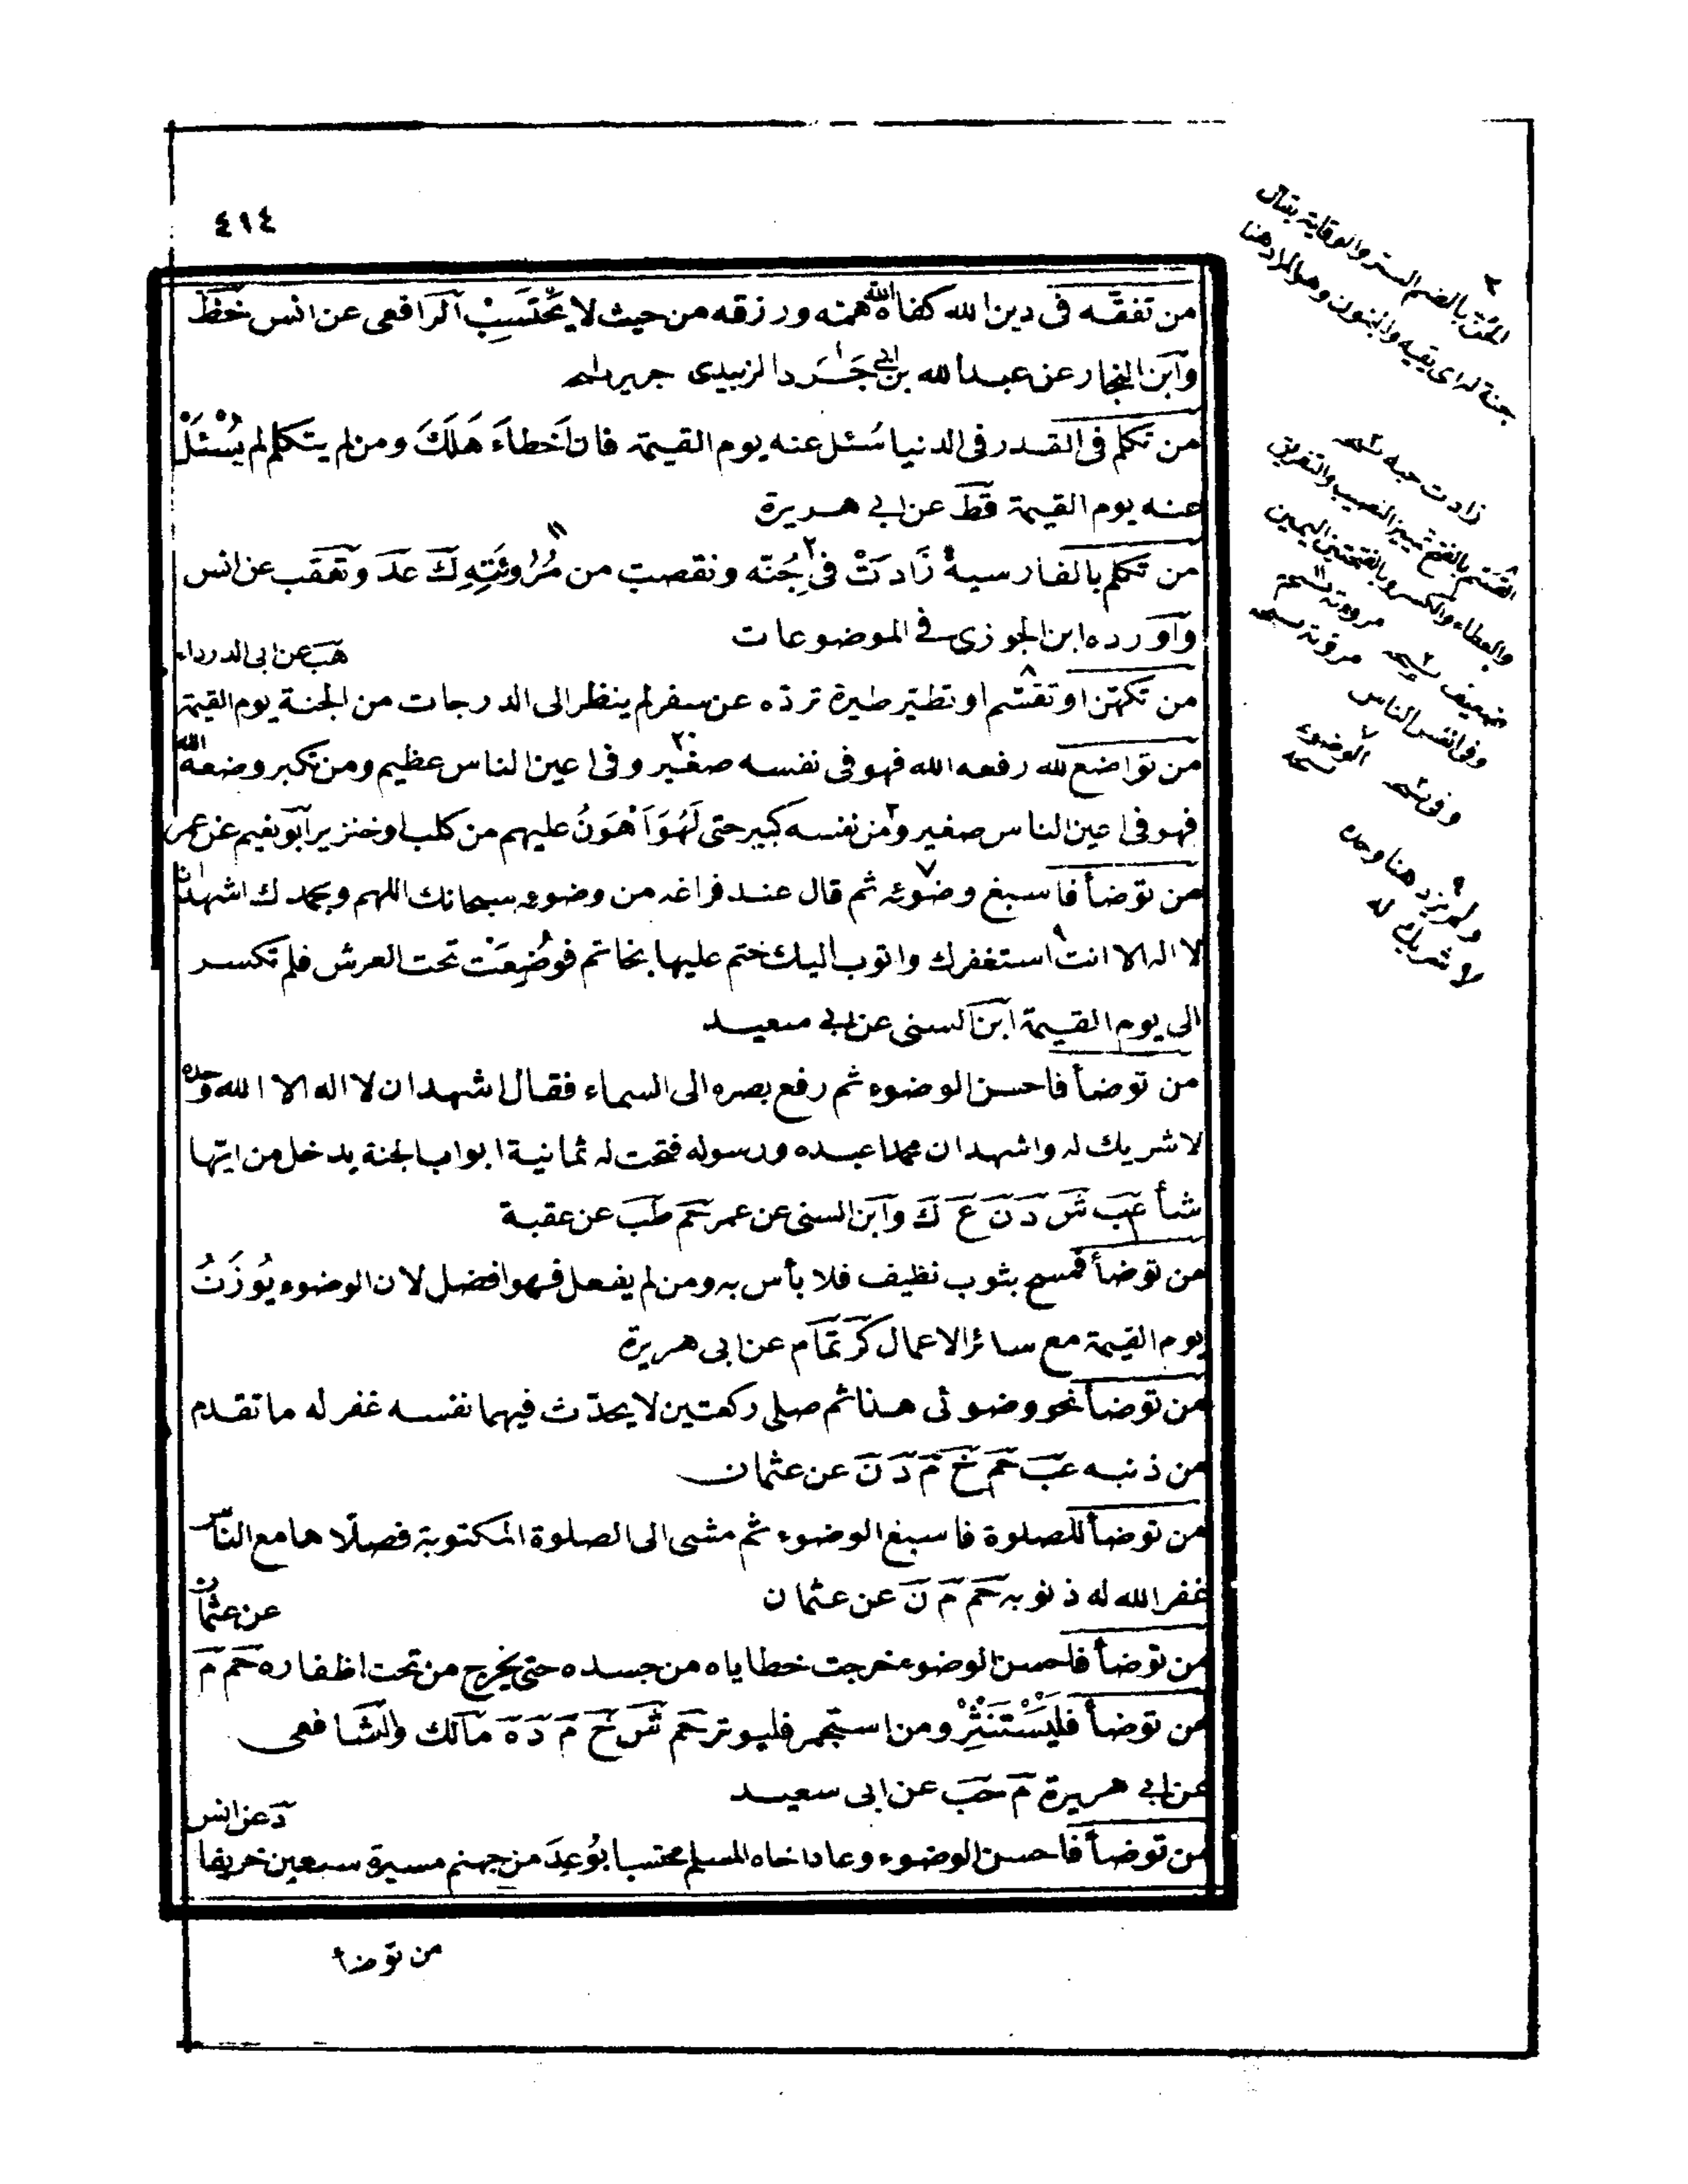 ٤١٤
من تفقّه فى دين الله كفاه الله همّه ورزقه من حيث لا يحْتَسِبْ الرافعى عن انس خط
وابن النجار عن عبد الله بن ابى جَرَد الزبيدى جرير
من تكلم فى القدر فى الدنيا سُئل عنه يوم القيمة فان اَخطاءَ هَلَكَ ومن لم يتكلم لم يُسْئَلْ
عنه يوم القيمة قط عن ابى هريرة
من تكلم بالفارسية زَادَتْ فى خِبّه ونقصت من مُرُوئَتِهِ ك عد وتعقب عن انس
واورده ابن الجوزى فى الموضوعات
هب عن ابى الدرداء
من تكهّن او تقسّم او تطيّر طيرة تردّه عن سفر لم ينظر الى الدرجات من الجنة يوم القيمة
من تواضع لله رفعه الله فهو فى نفسه صغير وفى اعين الناس عظيم ومن تكبر وضعه الله
فهو فى اعين الناس صغير ومن نفسه كبير حتى لَهُوَ اَهْوَنُ عليهم من كلب او خنزير ابو نعيم عن عمر
من توضأ فاسبغ وضوئه ثم قال عند فراغه من وضوءه سبحانك اللهم وبحمدك اشهد ان
لا اله الا انت استغفرك واتوب اليك ختم عليها بخاتم فوُضِعَتْ تحت العرش فلم تكسر
الى يوم القيمة ابن السنى عن ابى سعيد
من توضأ فاحسن الوضوء ثم رفع بصره الى السماء فقال اشهد ان لا اله الا الله وحده
لا شريك له واشهد ان محمدا عبده ورسوله فتحت له ثمانية ابواب الجنة يدخل من ايّها
شأ عب ش د ن ع ك وابن السنى عن عمر حم طب عن عقبة
من توضأ فمسح بثوب نظيف فلا بأس به ومن لم يفعل فهو افضل لان الوضوء يُوزَنُ
يوم القيمة مع سائر الاعمال كر تمام عن ابى هريرة
من توضأ نحو وضوئى هذا ثم صلى ركعتين لا يحدّث فيهما نفسه غفر له ما تقدم
من ذنبه عب حم خ م د ن عن عثمان
من توضأ للصلوة فاسبغ الوضوء ثم مشى الى الصلوة المكتوبة فصلّاها مع الناس
غفر الله له ذنوبه حم م ن عن عثمان
عن عثمان
من توضأ فاحسن الوضوء خرجت خطاياه من جسده حتى يخرج من تحت اظفاره حم م
من توضأ فلْيَسْتَنْثِرْ ومن استجمر فليوتر حم ش خ م د ه مالك والشافعى
عن ابى هريرة م حب عن ابى سعيد
د عن انس
من توضأ فاحسن الوضوء وعاد اخاه المسلم محتسبا بُوعِدَ من جهنم مسيرة سبعين خريفا
من توضأ
٣
الجُنّة بالضم الستر والوقاية يقال
جنة له اى يقيه والجنون وهو المراد هنا
زادت خبه نسخه
القسم بالفتح تمييز النصيب والتفريق
والعطاء وبالكسر وبالفتحتين اليمين
مروءته نسخه
ضعيف نسخه مروته نسخه
وفى انفس الناس
وفى نسخه الوضوء
نسخه
ولم يزد هنا وحده
لا شريك له